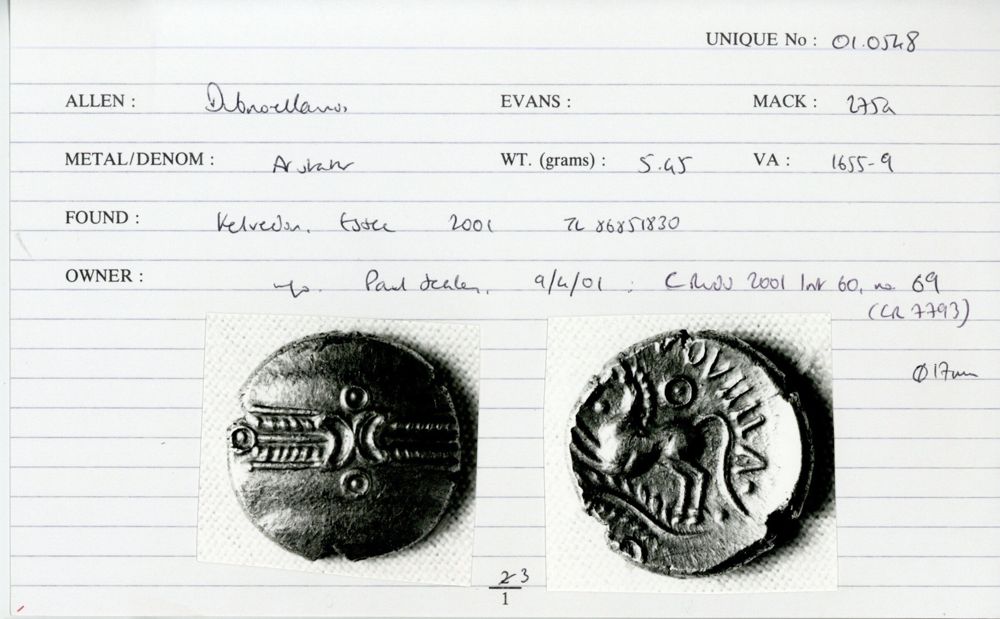 UNIQUE No : 01.0548
ALLEN : Dubnovellaunos EVANS : MACK : 275a
METAL/DENOM : AV stater WT. (grams) : 5.45 VA : 1655-9
FOUND : Kelvedon, Essex 2001 TL 86851830
OWNER : Paul 9/4/01 : 2001 60, no. 69
(CR 7793)
Ø 17mm
2 3
1